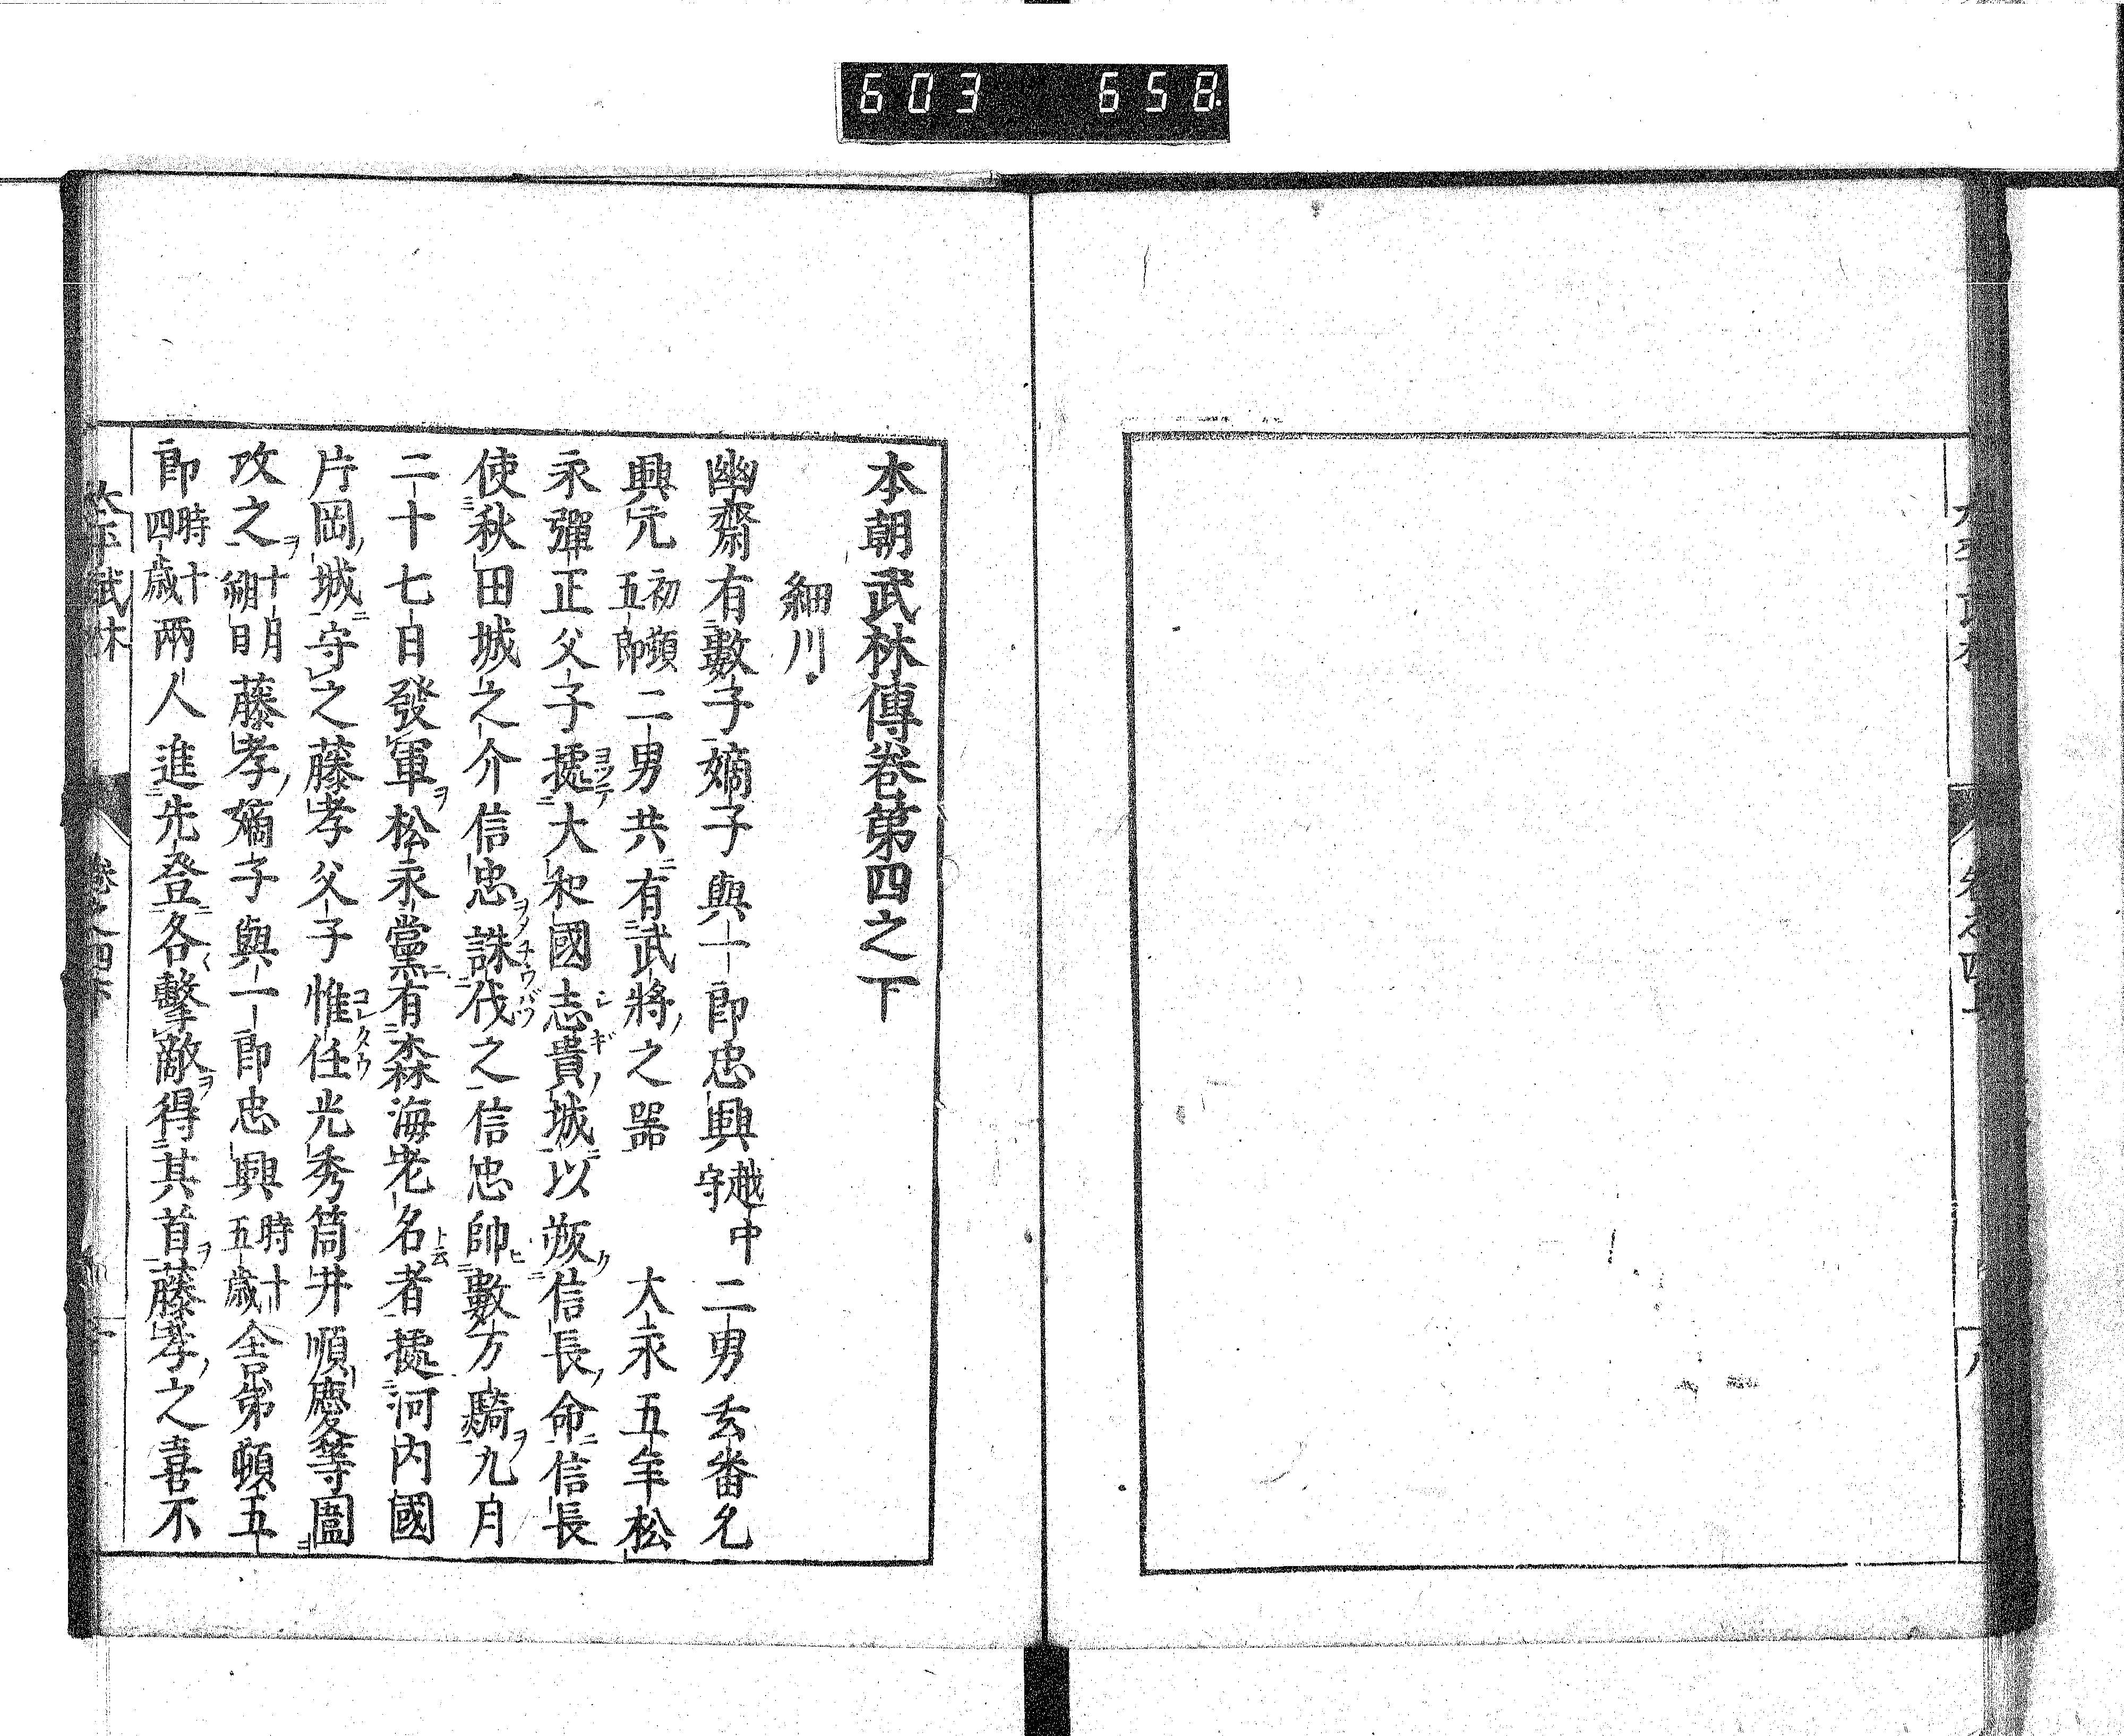 603 658
本朝武林傳卷第四之下
細川
幽齋有數子嫡子與一郎忠興越中守二男玄蕃允
興元初頴五郎二男共有武將之器　大永五年松
永彈正父子據大和國志貴城以叛信長命信長
使秋田城之介信忠誅伐之信忠帥數万騎九月
二十七日發軍松永黨有森海老名者據河内國
片岡城守之藤孝父子惟任光秀筒井順慶等圍
攻之十月朔日藤孝嫡子與一郎忠興時十五歳舎弟頓五
郎時十四歳兩人進先登各擊敵得其首藤孝之喜不